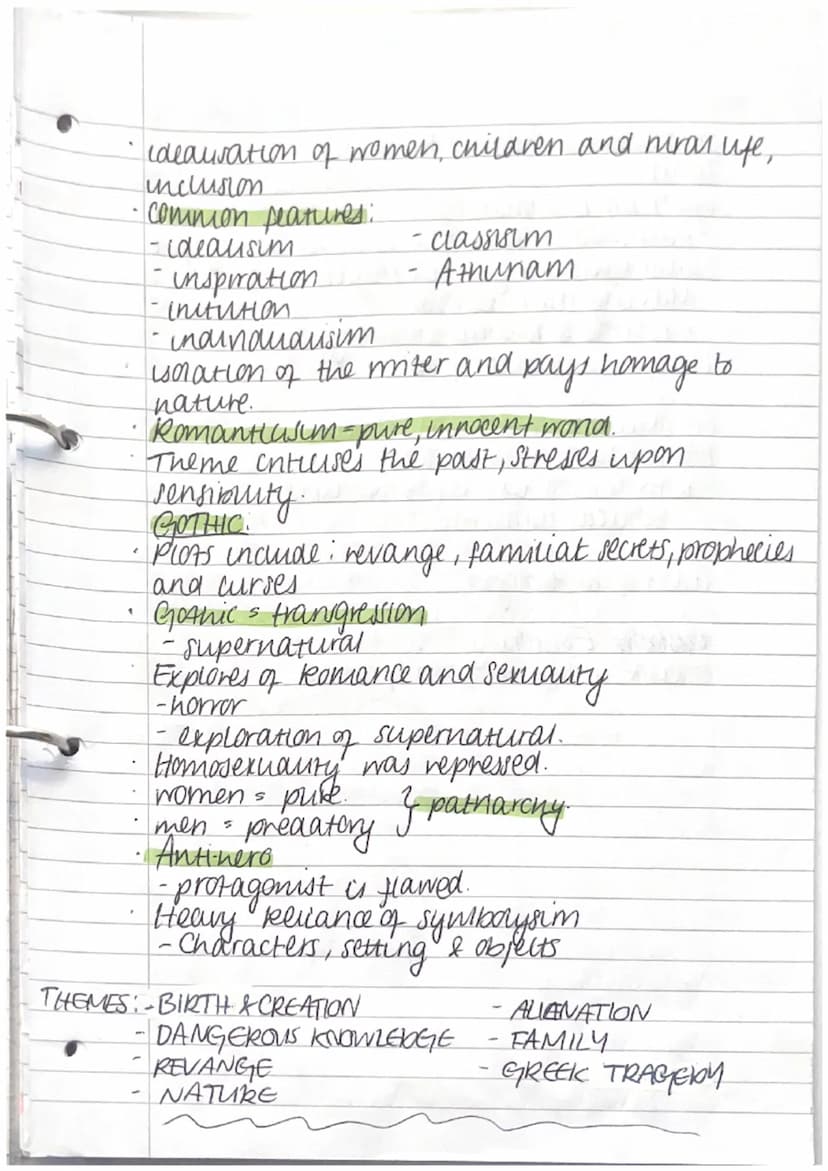 · idealisation of women, children and rural life,
inclusion
· common features:
- idealisim - classisim
- inspiration
- intution
- individualisim
· isolation of the writer and pays homage to
nature.
· Romanticisim = pure, innocent world.
· Theme criticises the past, stresses upon
sensibility.
GOTHIC:
· Plots include: revange, familiat secrets, prophecies
and curses
· Gothic = transgression
- supernatural
Explores of Romance and sexuality
- horror
- exploration of supernatural.
· Homosexuality was repressed.
· women = pure. } patriarchy.
· men = predatory
· Anti-hero
- protagonist is flawed.
· Heavy reliance of symbolysim
- Characters, setting & objects
THEMES: - BIRTH & CREATION - ALIENATION
- DANGEROUS KNOWLEDGE - FAMILY
- REVANGE - GREEK TRAGEDY
- NATURE